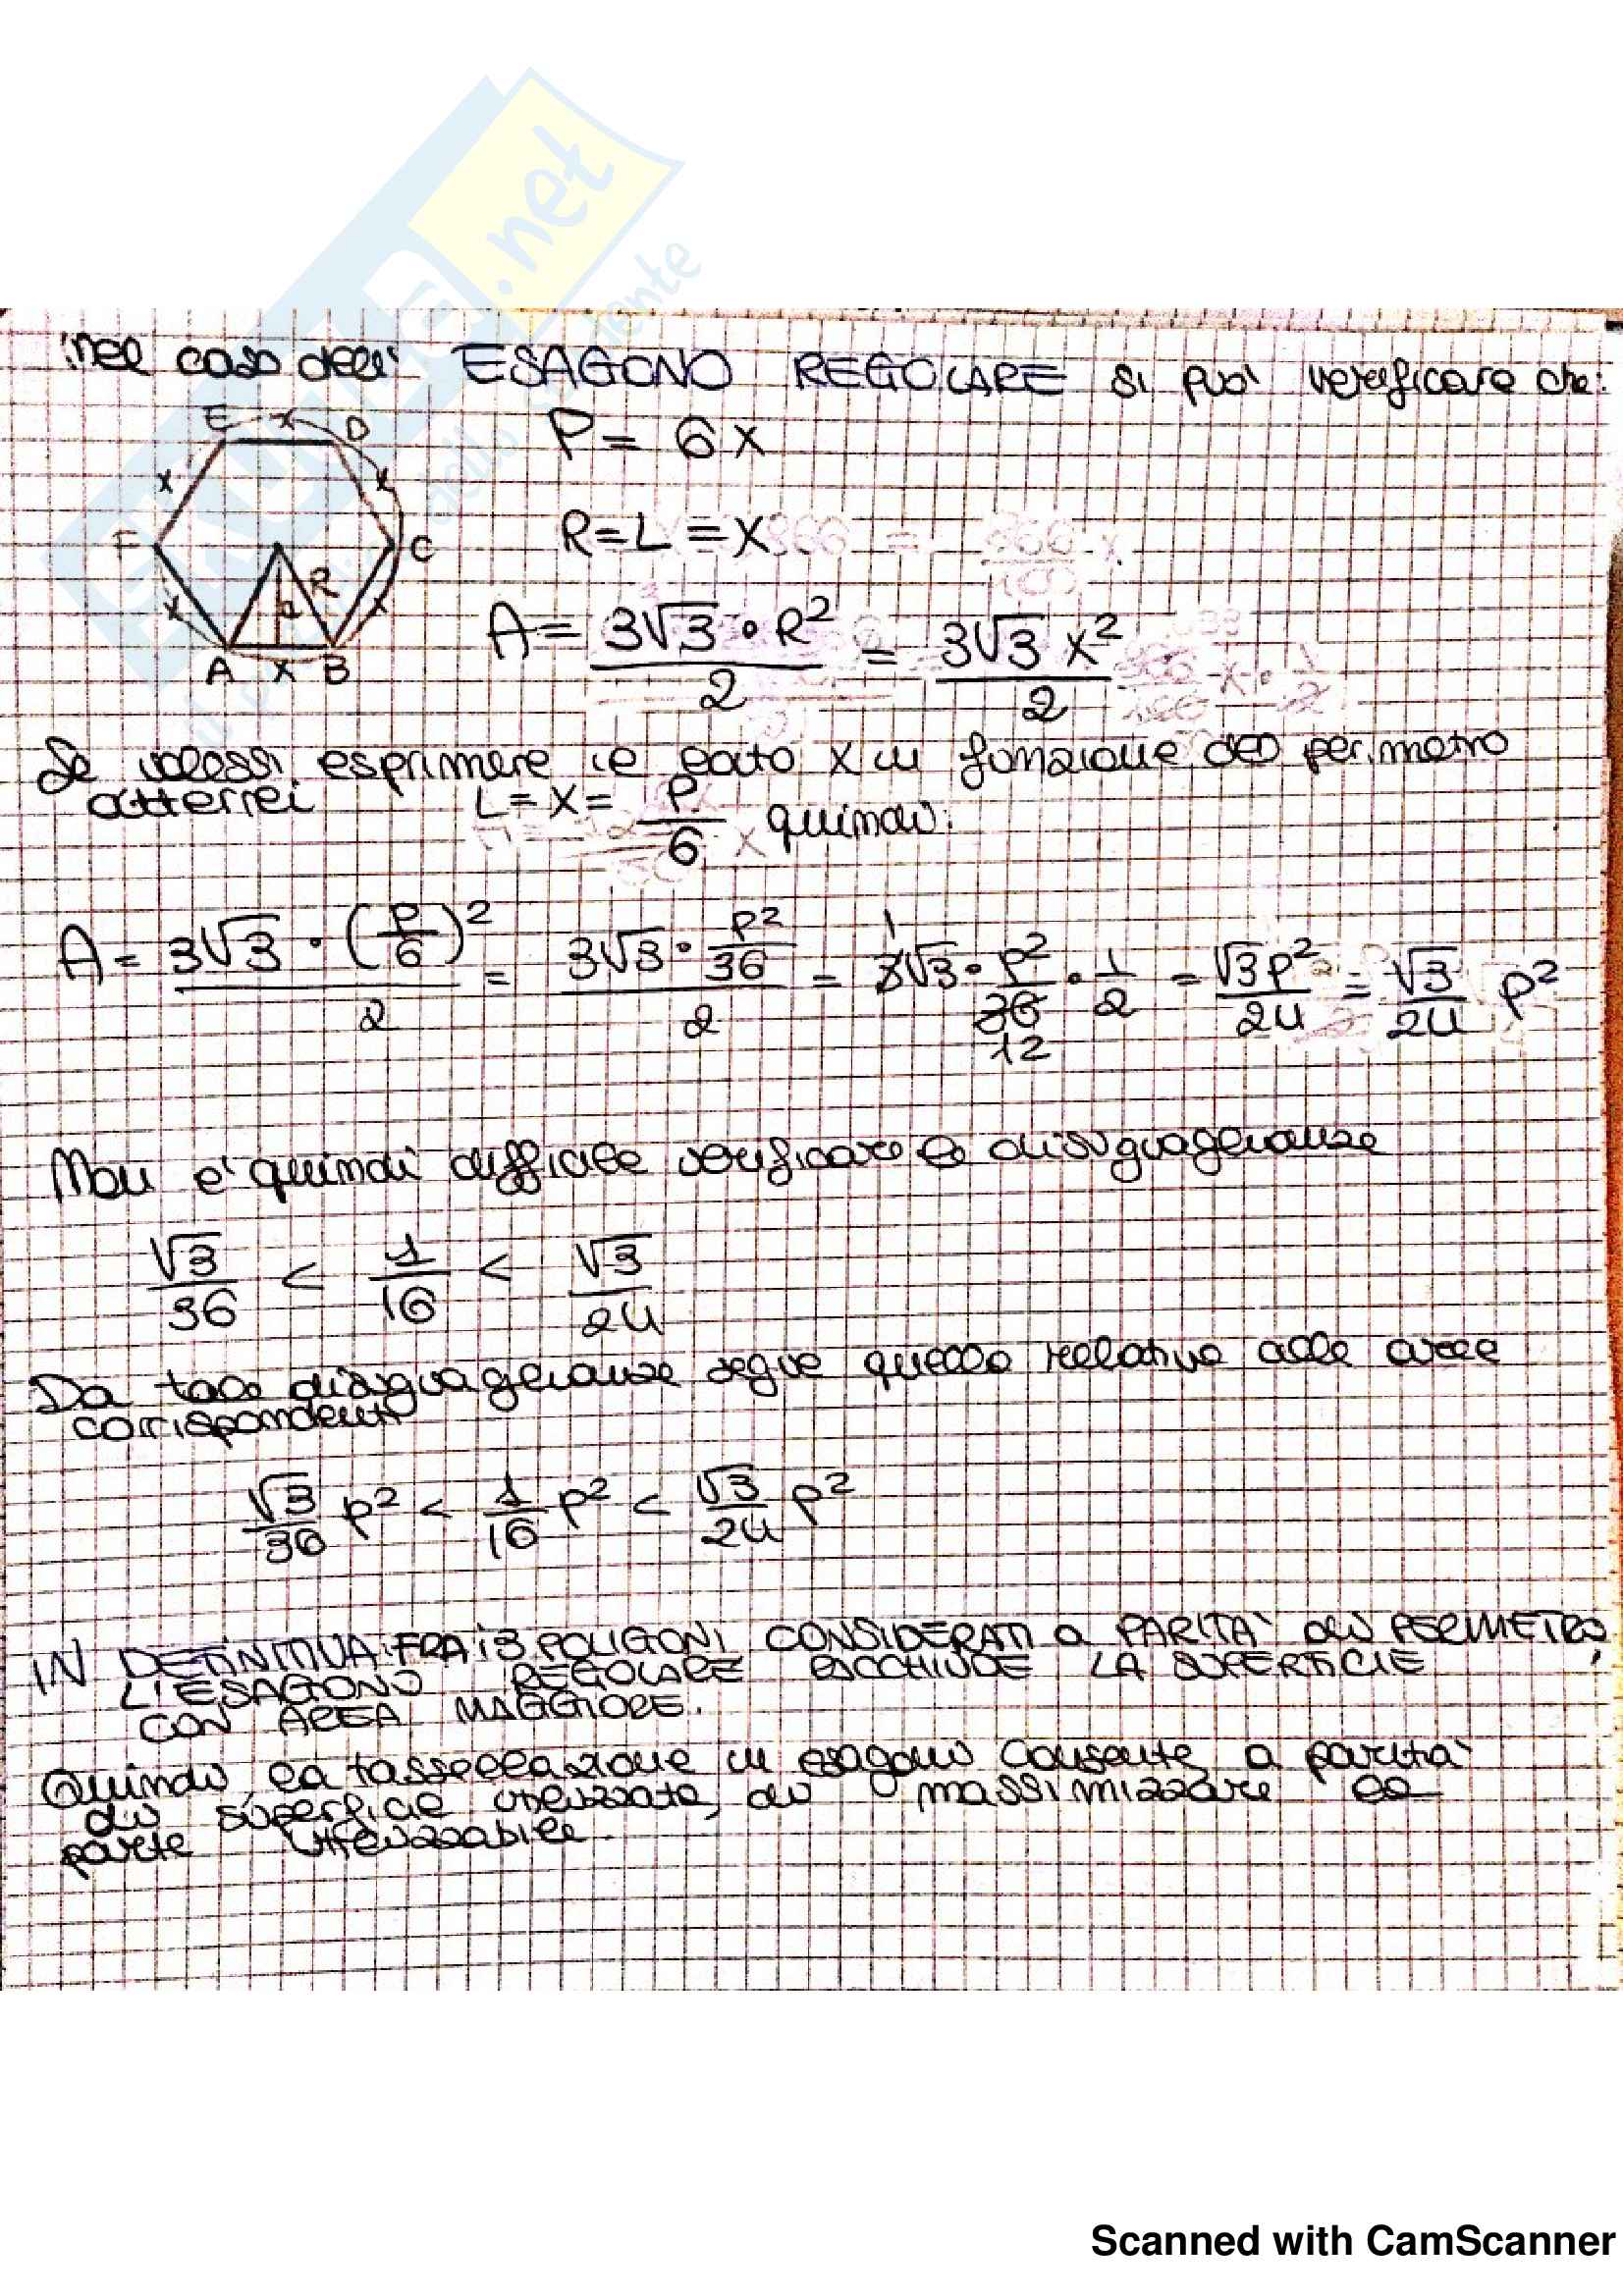 nel caso dell' ESAGONO REGOLARE si può verificare che:
E x D
x x
F C
R
a
x x
A x B
P = 6x
R = L = x
A = 3√3 · R² / 2 = 3√3 x² / 2
Se volessi esprimere il lato x in funzione del perimetro
otterrei L = x = P/6 quindi:
A = 3√3 · (P/6)² / 2 = 3√3 · P²/36 / 2 = 3√3 · P²/36 · 1/2 = √3P²/24 = √3/24 P²
1
12
Non è quindi difficile verificare la disuguaglianza
√3/36 < 1/16 < √3/24
Da tale disuguaglianza segue quella relativa alle aree
corrispondenti
√3/36 P² < 1/16 P² < √3/24 P²
IN DEFINITIVA, FRA i 3 POLIGONI CONSIDERATI a PARITA' di PERIMETRO,
L'ESAGONO REGOLARE RACCHIUDE LA SUPERFICIE
CON AREA MAGGIORE.
Quindi, la tassellazione in esagoni consente, a parità
di superficie utilizzata, di massimizzare la
parte utilizzabile.
.net
Scanned with CamScanner